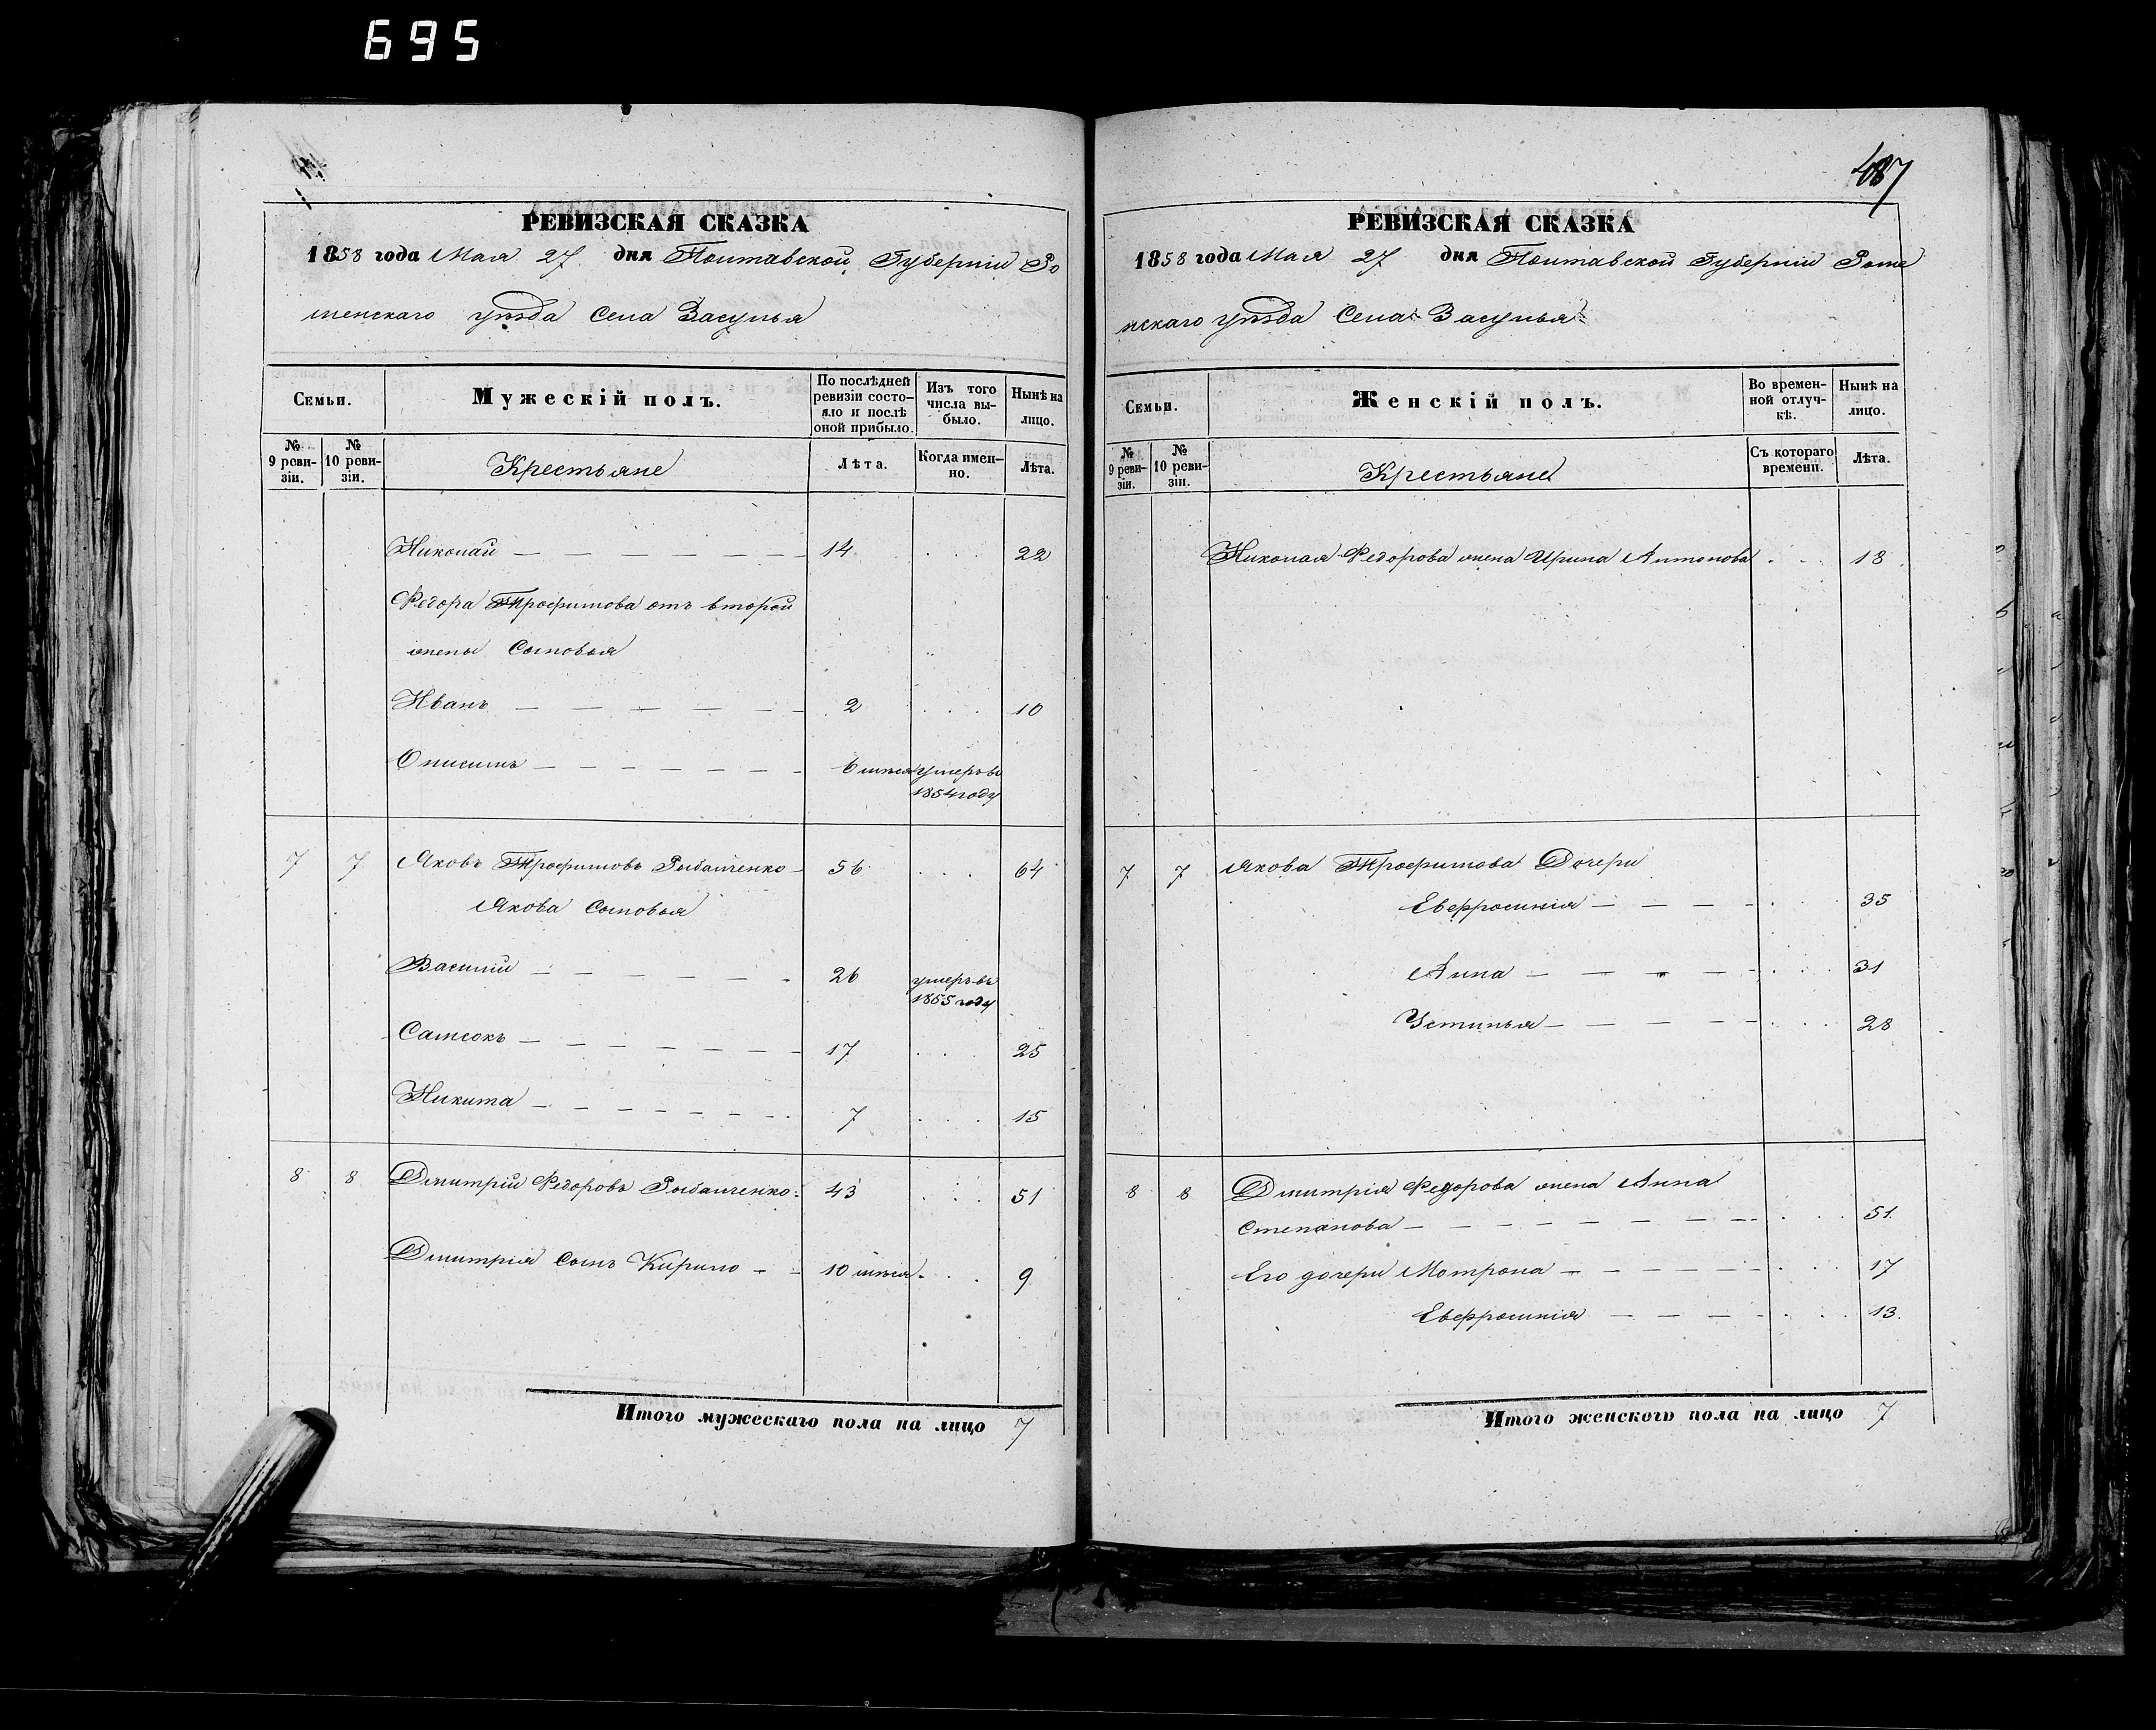 695
РЕВИЗСКАЯ СКАЗКА
1858 года Мая 27 дня Полтавской Губерніи Ро
менскаго уѣзда Села Засулья
Семьи.
Мужескій полъ.
По послѣдней ревизіи состояло и послѣ оной прибыло.
Изъ того числа выбыло.
Нынѣ на лицо.
№ 9 ревизіи.
№ 10 ревизіи.
Крестьяне
Лѣта.
Когда именно.
Лѣта.
Николай — — — — — — — 14 . . . 22
Федора Трофимова отъ второй
жены Сыновья
Иванъ — — — — — — 2 . . . 10
Онисимъ — — — — — — — 6 мѣся умеръ въ
1854 году
7 7 Яковъ Трофимовъ Рыбалченко - 56 . . . 64
Якова Сыновья
Василій — — — — — — - 26 умеръ въ
1855 году
Самсонъ — — — — — — — 17 . . . 25
Никита — — — — — — — 7 . . . 15
8 8 Дмитрій Федоровъ Рыбалченко 43 . . . 51
Дмитрія сынъ Кирило — - 10 мѣся . . . 9
Итого мужескаго пола на лицо 7
487
РЕВИЗСКАЯ СКАЗКА
1858 года Мая 27 дня Полтавской Губерніи Роме
нскаго уѣзда Села Засулья
Семьи.
Женскій полъ.
Во временной отлучкѣ.
Нынѣ на лицо.
№ 9 ревизіи.
№ 10 ревизіи.
Крестьяне
Съ котораго времени.
Лѣта.
Николая Федорова жена Ирина Антонова . . . 18
7 7 Якова Трофимова Дочери
Евфросинія — — — - . . . 35
Анна — — — — - . . . 31
Устинья — — — — — . . . 28
8 8 Дмитрія Федорова жена Анна
Степанова — — — — — — — — . . . 51.
Его дочери Мотрона — — — — — — . . . 17
Евфросинія — — — — . . . 13.
Итого женскаго пола на лицо 7